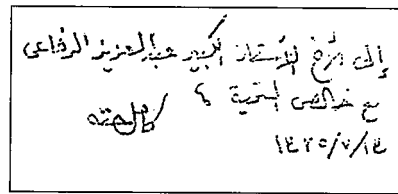 إلى الأخ الأستاذ الكبير عبدالعزيز الرفاعي
مع خالص التحية ؟
كامل حته